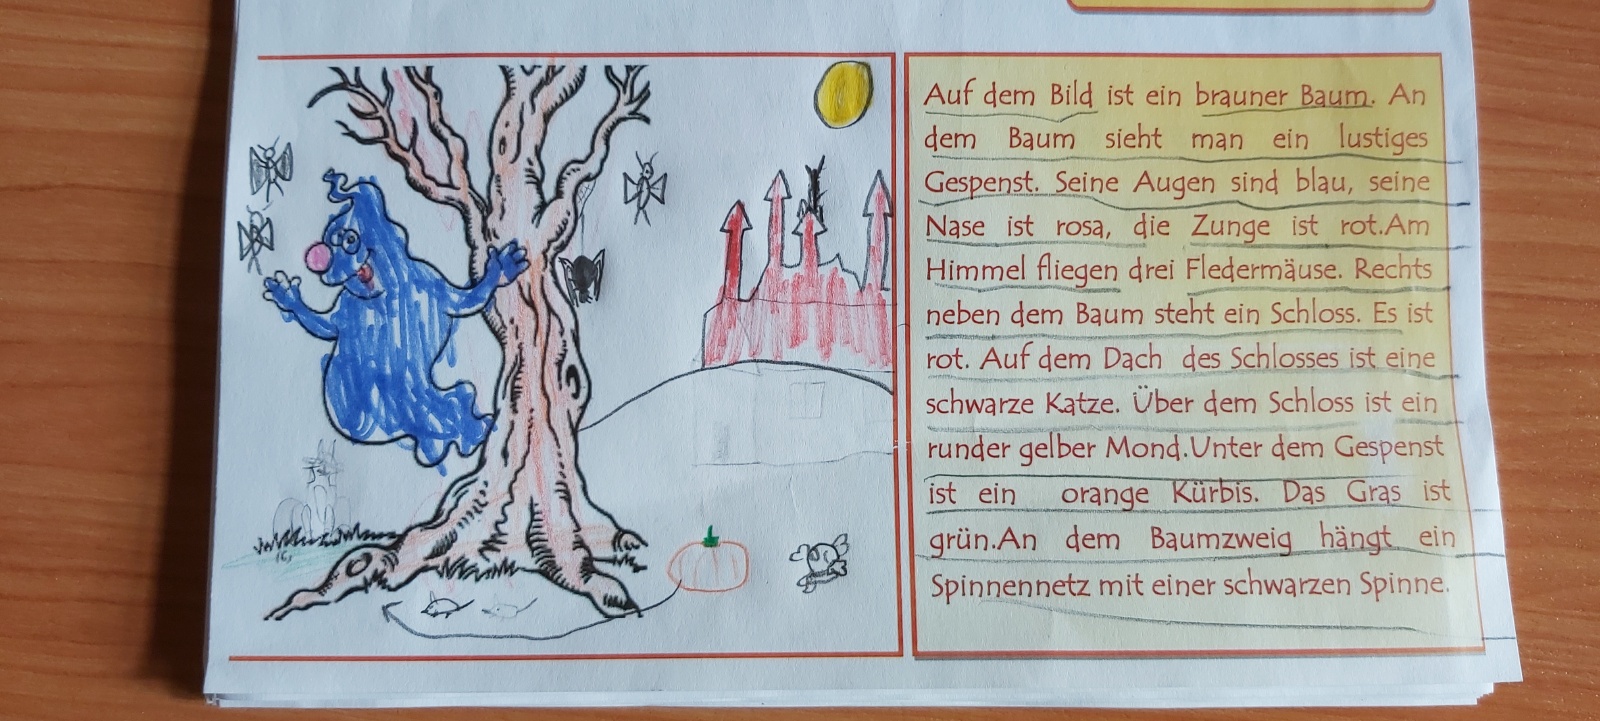 Auf dem Bild ist ein brauner Baum. An
dem Baum sieht man ein lustiges
Gespenst. Seine Augen sind blau, seine
Nase ist rosa, die Zunge ist rot.Am
Himmel fliegen drei Fledermäuse. Rechts
neben dem Baum steht ein Schloss. Es ist
rot. Auf dem Dach des Schlosses ist eine
schwarze Katze. Über dem Schloss ist ein
runder gelber Mond.Unter dem Gespenst
ist ein orange Kürbis. Das Gras ist
grün.An dem Baumzweig hängt ein
Spinnennetz mit einer schwarzen Spinne.